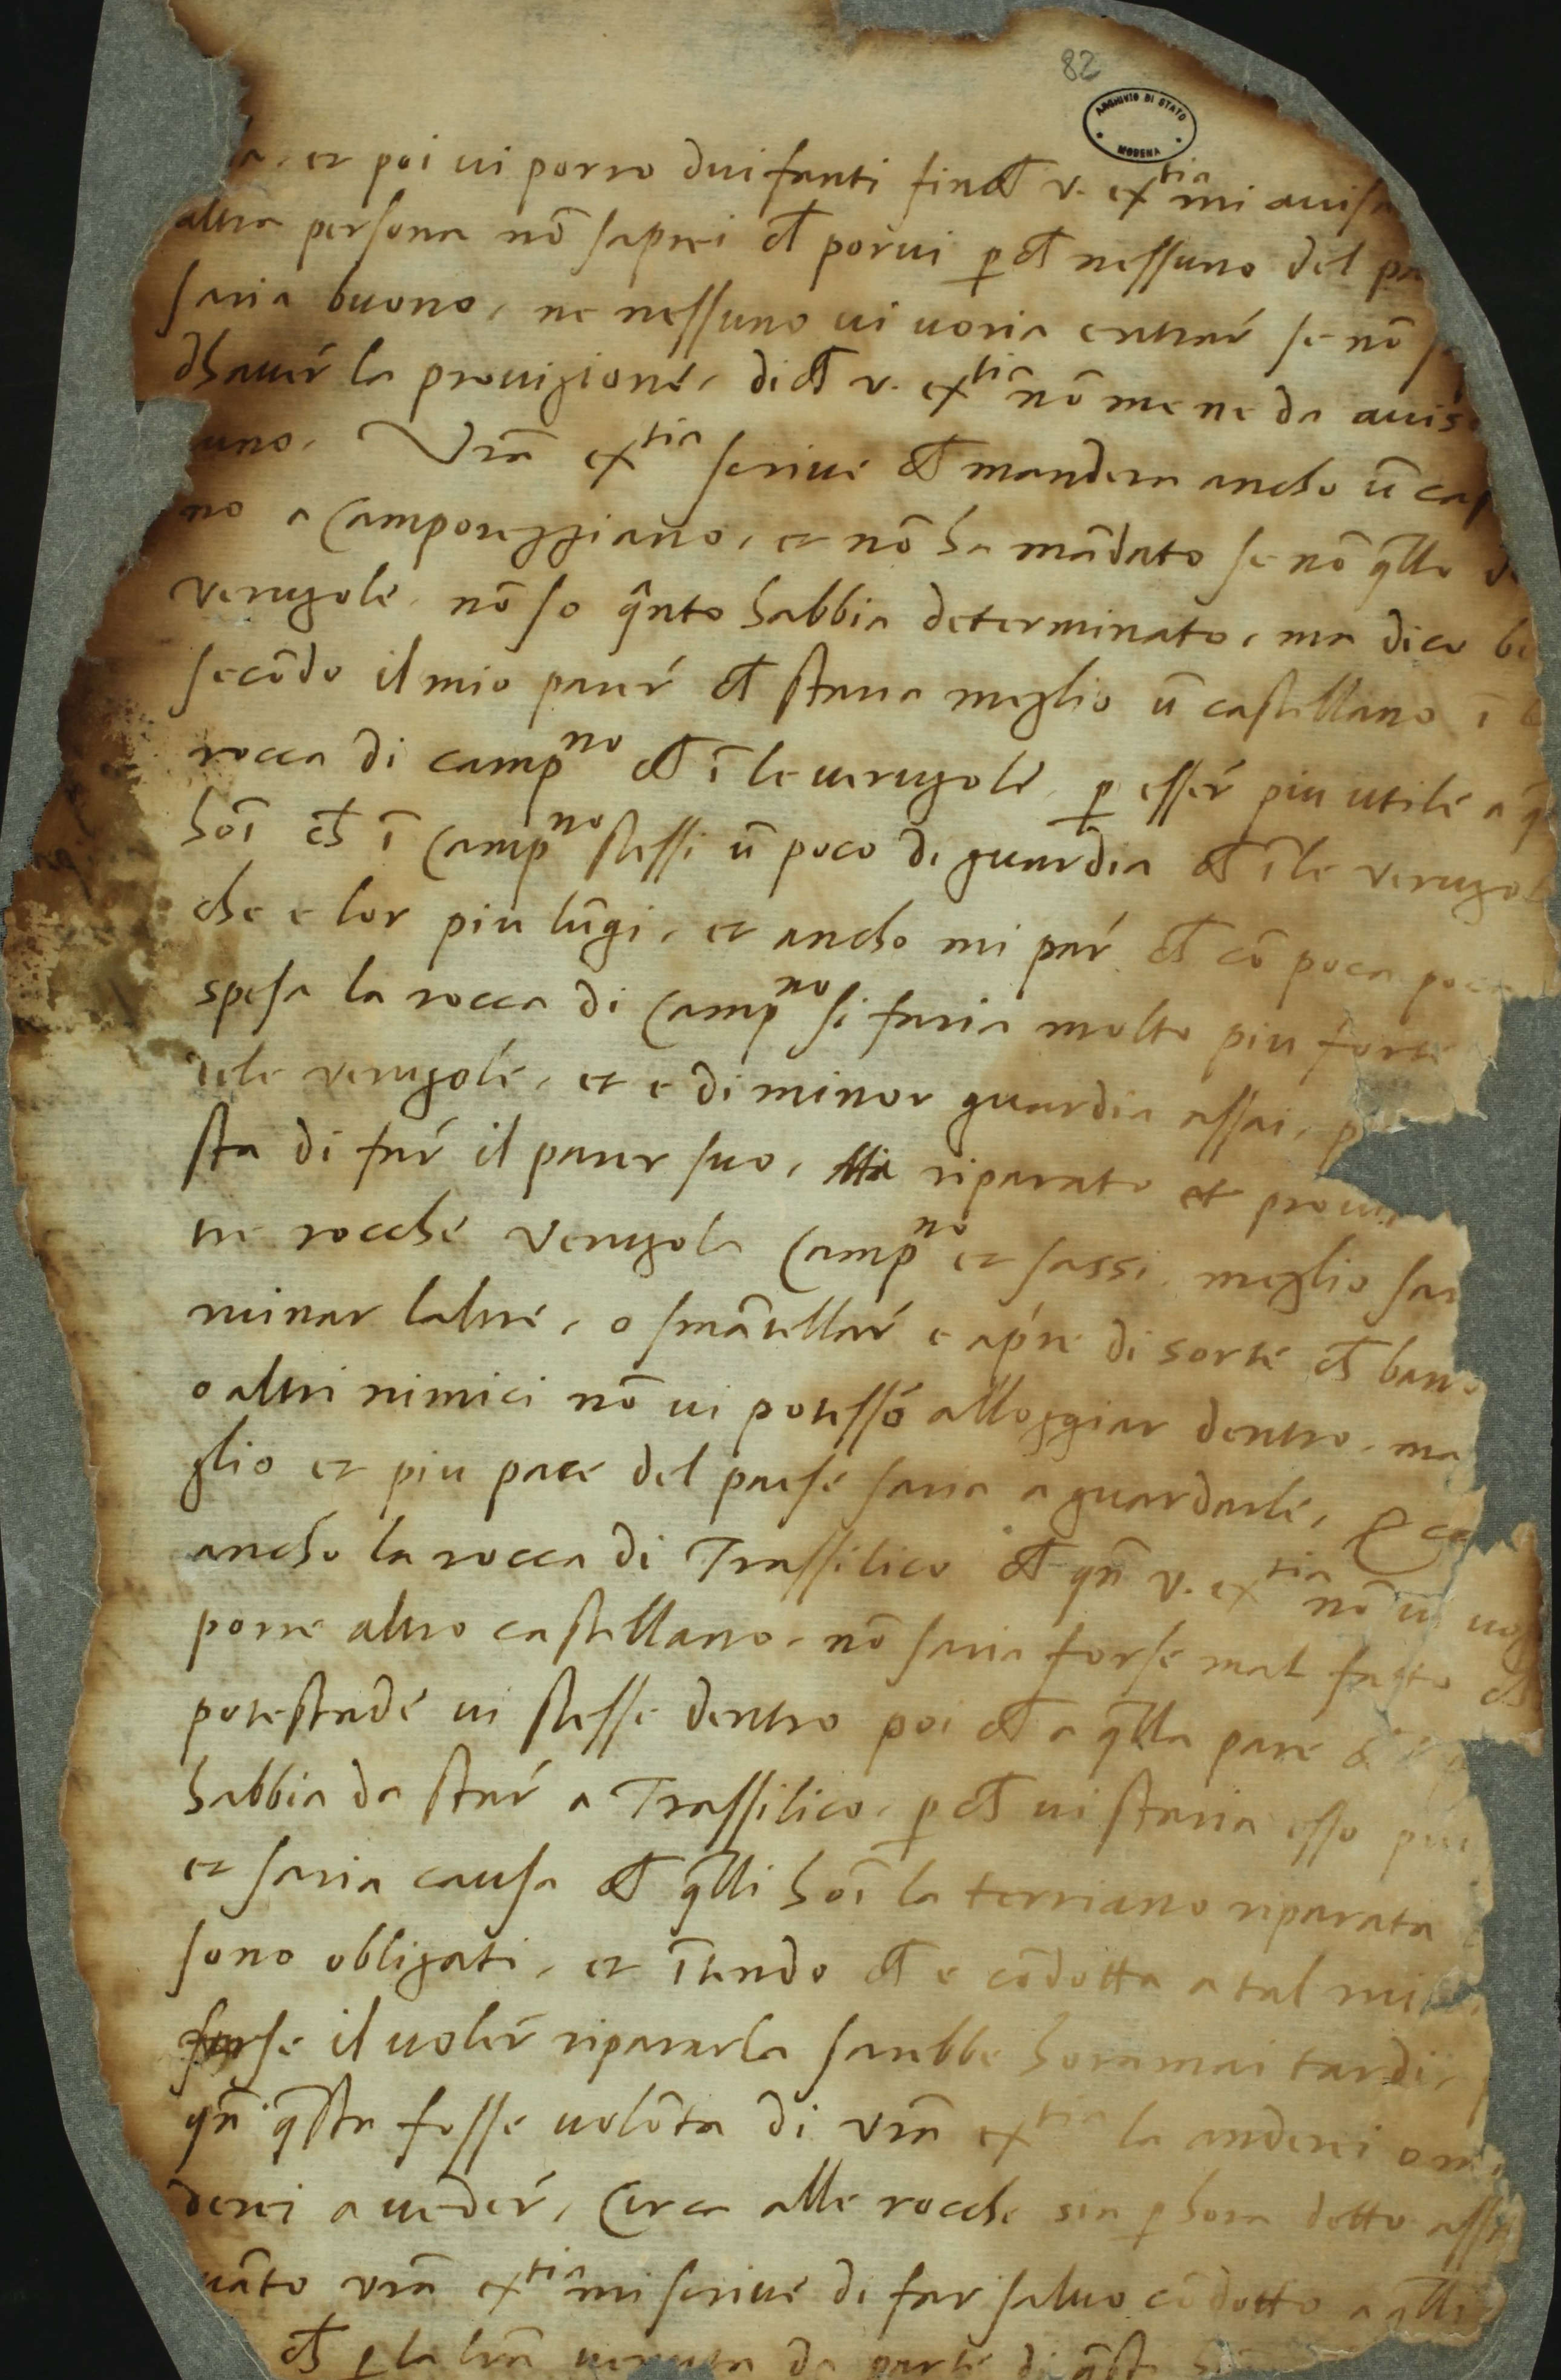 82
ARCHIVIO DI STATO
MODENA
a, et poi ui porro dui fanti fin ch̄ v. ex^tia mi auisa
altra persona nō saprei ch̄ porui p̱ ch̄ nessuno del pa
saria buono, ne nessuno ui uoria entraŕ se nō
dhaueŕ la prouigione, di ch̄ v. ex^tia nō me ne da auis
uno. Vrā ex^tia scriue ch̄ mandera ancho ū cas
no a Camporeggiano, et nō ha mādato se nō q̄llo de
verugole, nō so q̄nto habbia determinato, ma dico be
secōdo il mio pareŕ ch̄ staria meglio ū castellano ī
rocca di camp^no ch̄ ī le uerugole, p̱ esseŕ piu utile a q̄
hoī ch̄ ī Camp^no stessi ū poco di guardia ch̄ ī le verugol
che e lor piu lūgi, et ancho mi paŕ ch̄ cō poca
spesa la rocca di Camp^no si faria molto piu forte
le verugole, et e di minor guardia assai,
sta di faŕ il parer suo, riparato et proui
tre rocche verugola Camp^no et sassi, meglio sar
ruinar laltre, o smātellaŕ e aṕre di sorte ch̄ ban
o altri nimici nō ui potessō alloggiar dentro, ma
glio et piu pace del paese saria a guardarle,
ancho la rocca di Trassilico ch̄ qn̄ v. ex^tia nō ui uog
porre altro castellano, nō saria forse mal fatto ch̄
potestade ui stesse dentro poi ch̄ a q̄lla pare
habbia da staŕ a Trassilico, p̱ ch̄ ui staria esso piu
et saria causa ch̄ q̄lli hoī la terriano riparata
sono obligati, et ītendo ch̄ e cōdotta a tal
forse il uoleŕ ripararla sarebbe horamai tardi,
qn̄ q̄sta fosse uolōta di vrā ex^tia la anderei
derei a uedeŕ, Circa alle rocche sia p̱ hora detto assai
uāto vrā ex^tia mi scriue di far saluo cōdotto a q̄lli
ch̄ p̱ la lrā uenuta da parte di q̄sti